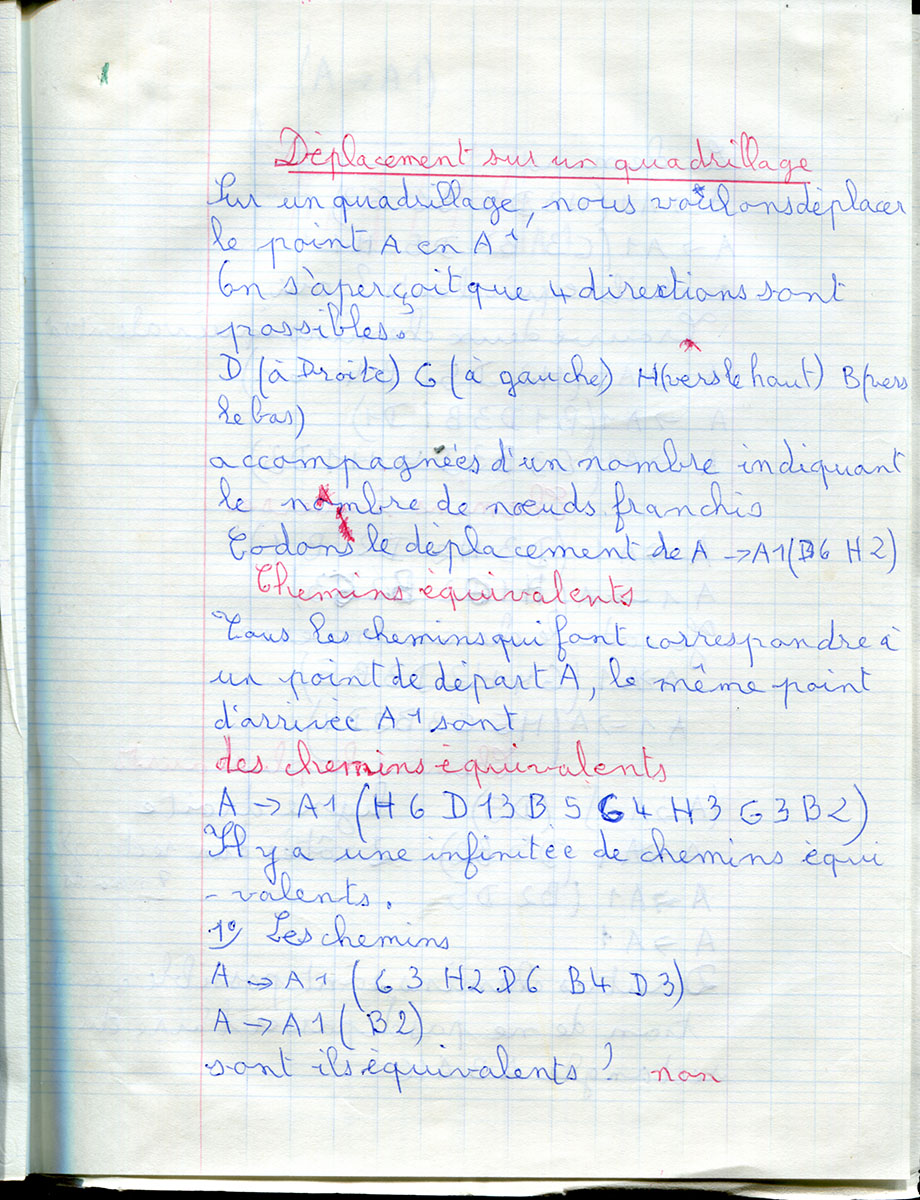 Déplacement sur un quadrillage
Sur un quadrillage, nous voulons déplacer
le point A en A1
On s'aperçoit que 4 directions sont
possibles.
D (à Droite) G (à gauche) H (vers le haut) B (vers
le bas)
accompagnées d'un nombre indiquant
le nombre de nœuds franchis
Codons le déplacement de A → A1 (D6 H2)
Chemins équivalents
Tous les chemins qui font correspondre à
un point de départ A, le même point
d'arrivée A1 sont
des chemins équivalents
A → A1 (H6 D13 B5 G4 H3 G3 B2)
Il y a une infinitée de chemins équi
-valents.
1°) Les chemins
A → A1 (G3 H2 D6 B4 D3)
A → A1 (B2)
sont ils équivalents ? non